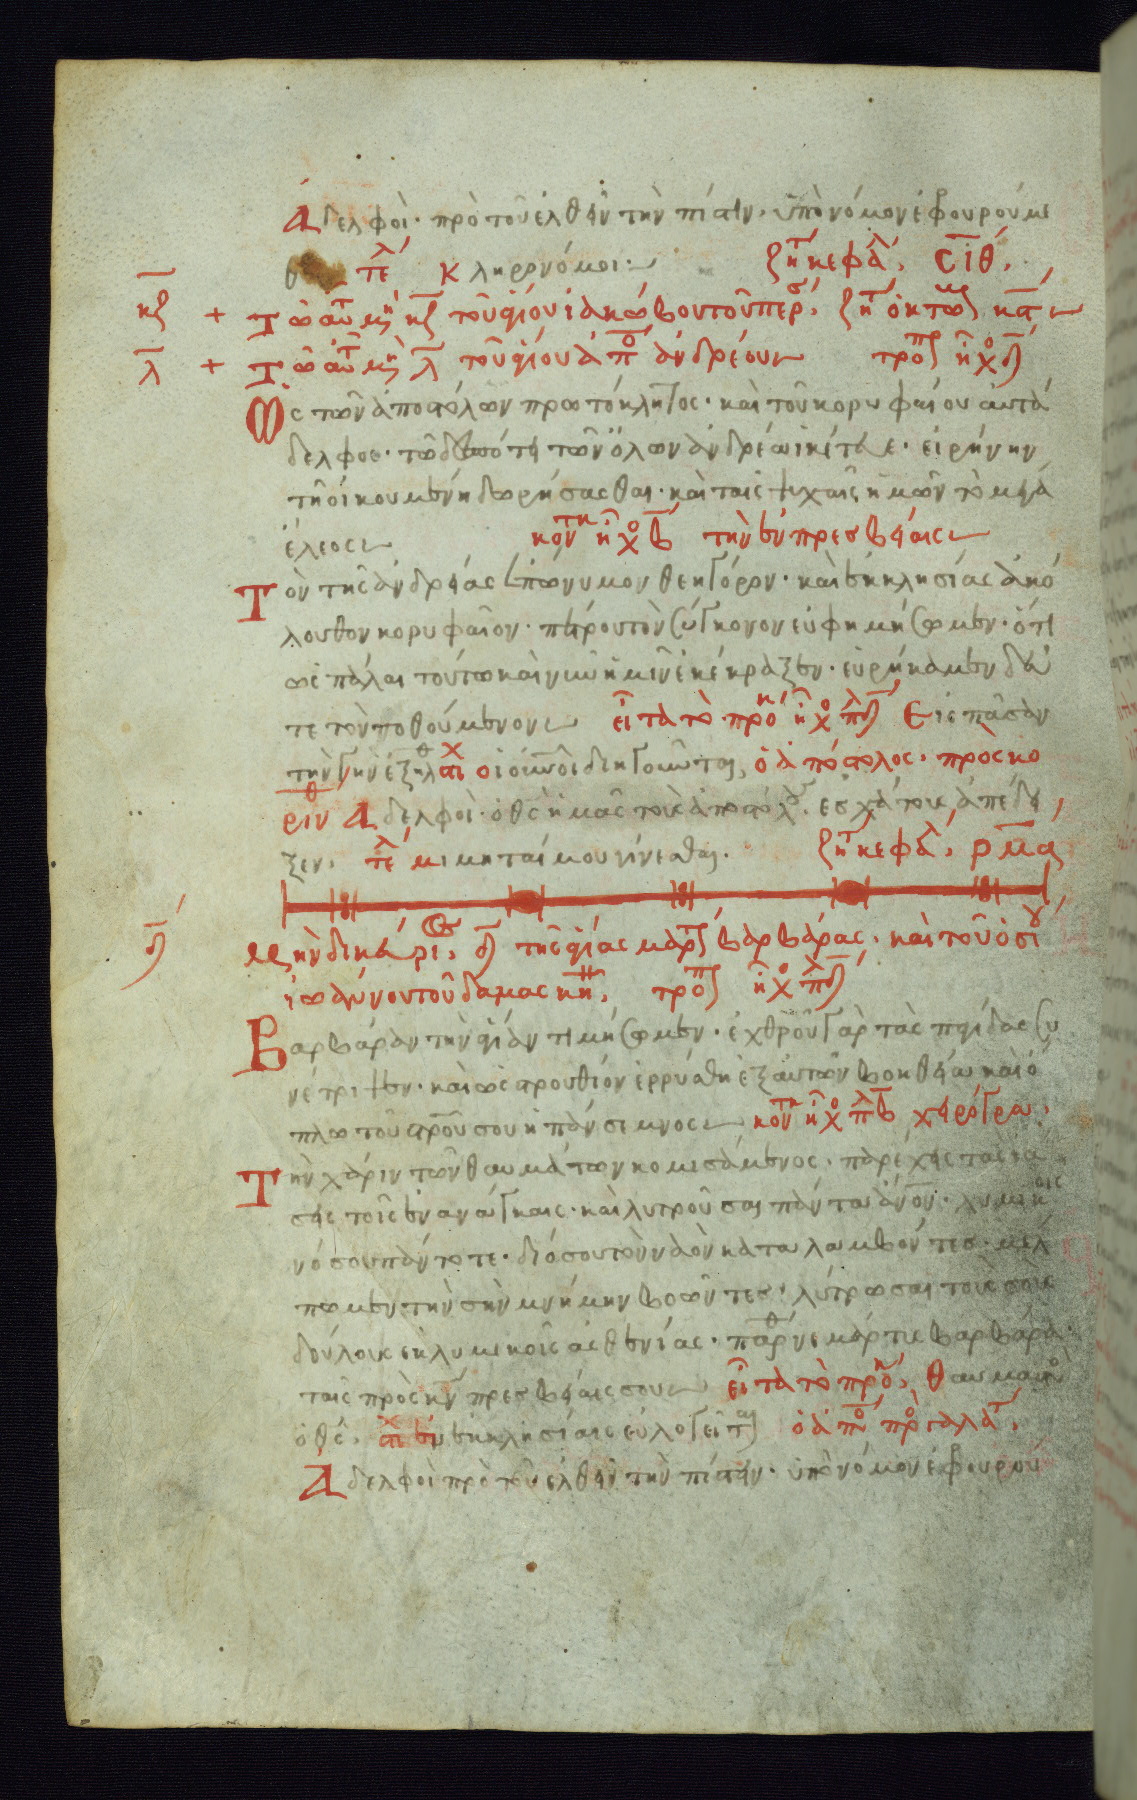 Ἀδελφοὶ· πρὸ τοῦ ἐλθεῖν τὴν πίστιν· ὑπὸ νόμον ἐφρουρούμε
θ τέλ κληρονόμοι:~ ζητ κεφάλ, σιθ.
κζ + Τῶ αὐτ μην κζ τοῦ ἁγίου ἰακώβου τοῦ πέρσ, ζητ ὀκτωβ κα
λ + Τῶ αὐτῶ μην λ τοῦ ἁγίου ἀποστό ἀνδρέου τροπ ἦχο δ
Ὡς τῶν ἀποστόλων πρωτόκλητος· καὶ τοῦ κορυφαίου αὐτά
δελφος· τῶ δεσπότη τῶν ὅλων ἀνδρέα ἱκέτευε· εἰρήνην
τῆ οἰκουμένη δωρήσασθαι· καὶ ταῖς ψυχαῖς ἡμῶν τὸ μέγα
ἔλεος κοντκ ἦχο β τὴν ἐν πρεσβείαις
Τὸν τῆς ἀνδρείας ἐπώνυμον θεηγόρον· καὶ ἐκκλησίας ἀκό
λουθον κορυφαῖον· πέτρου τὸν σύγγονον εὐφημήσωμεν· ὅτι
ὡς πάλαι τούτω καὶ νῦν ἡμῖν ἐκέκραξεν· εὑρήκαμεν δεῦ
τε τὸν ποθούμενον εἶτα τὸ προκ ἦχο πλδ Εἰς πᾶσαν
τὴν γῆν ἐξῆλθ στιχ οἱ οὐνοὶ διηγοῦνται, ὁ ἀπόστολος· προς κο
ρινθ Ἀδελφοὶ· ὁ θς ἡμᾶς τοὺς ἀποστόλ· ἐσχάτους ἀπέδει
ξεν, τέλ μιμηταί μου γίνεσθαι. ζητ κεφάλ, ρμα
δ Μὴν δικέβρι, δ τῆς ἁγίας μάρτ βαρβάρας· καὶ τοῦ ὁσίου
ἰωάννου τοῦ δαμασκη, τροπ ἦχο πλδ
Βαρβάραν τὴν ἁγίαν τιμήσωμεν· ἐχθροῦ γὰρ τὰς παγίδας συ
νέτριψεν· καὶ ὡς στρουθίον ἐρρύσθη ἐξ αὐτῶν βοηθεία καὶ ὅ
πλω τοῦ στροῦ σου ἡ πάνσεμνος κοντκ ἦχο πλβ χειρόγρα,
Τὴν χάριν τῶν θαυμάτων κομισάμενος· παρέχεις τὰς ἰά
σεις τοῖς ἐν ἀνάγκαις· καὶ λυτροῦσαι
νόσου πάντοτε· διό σου τὸν ναὸν καταλαμβόντες· μέλ
πωμεν τὴν σὴν μνήμην βοῶντες· λύτρωσαι τοὺς σοὺς
δούλους ἐκ λυμικοῖς ἀσθενίας· παρθ́νε μάρτυς βαρβάρα·
ταῖς πρὸς κν πρεσβείαις σου εἶτα τὸ προκ, θαυμαστὸ
ὁ θς. στιχ ἐν ἐκκλησίαις εὐλογεῖται ὁ ἀπο πρὸ γαλάτ.
Ἀδελφοὶ πρὸ τοῦ ἐλθεῖν τὴν πίστιν· ὑπὸ νόμον ἐφρουρού